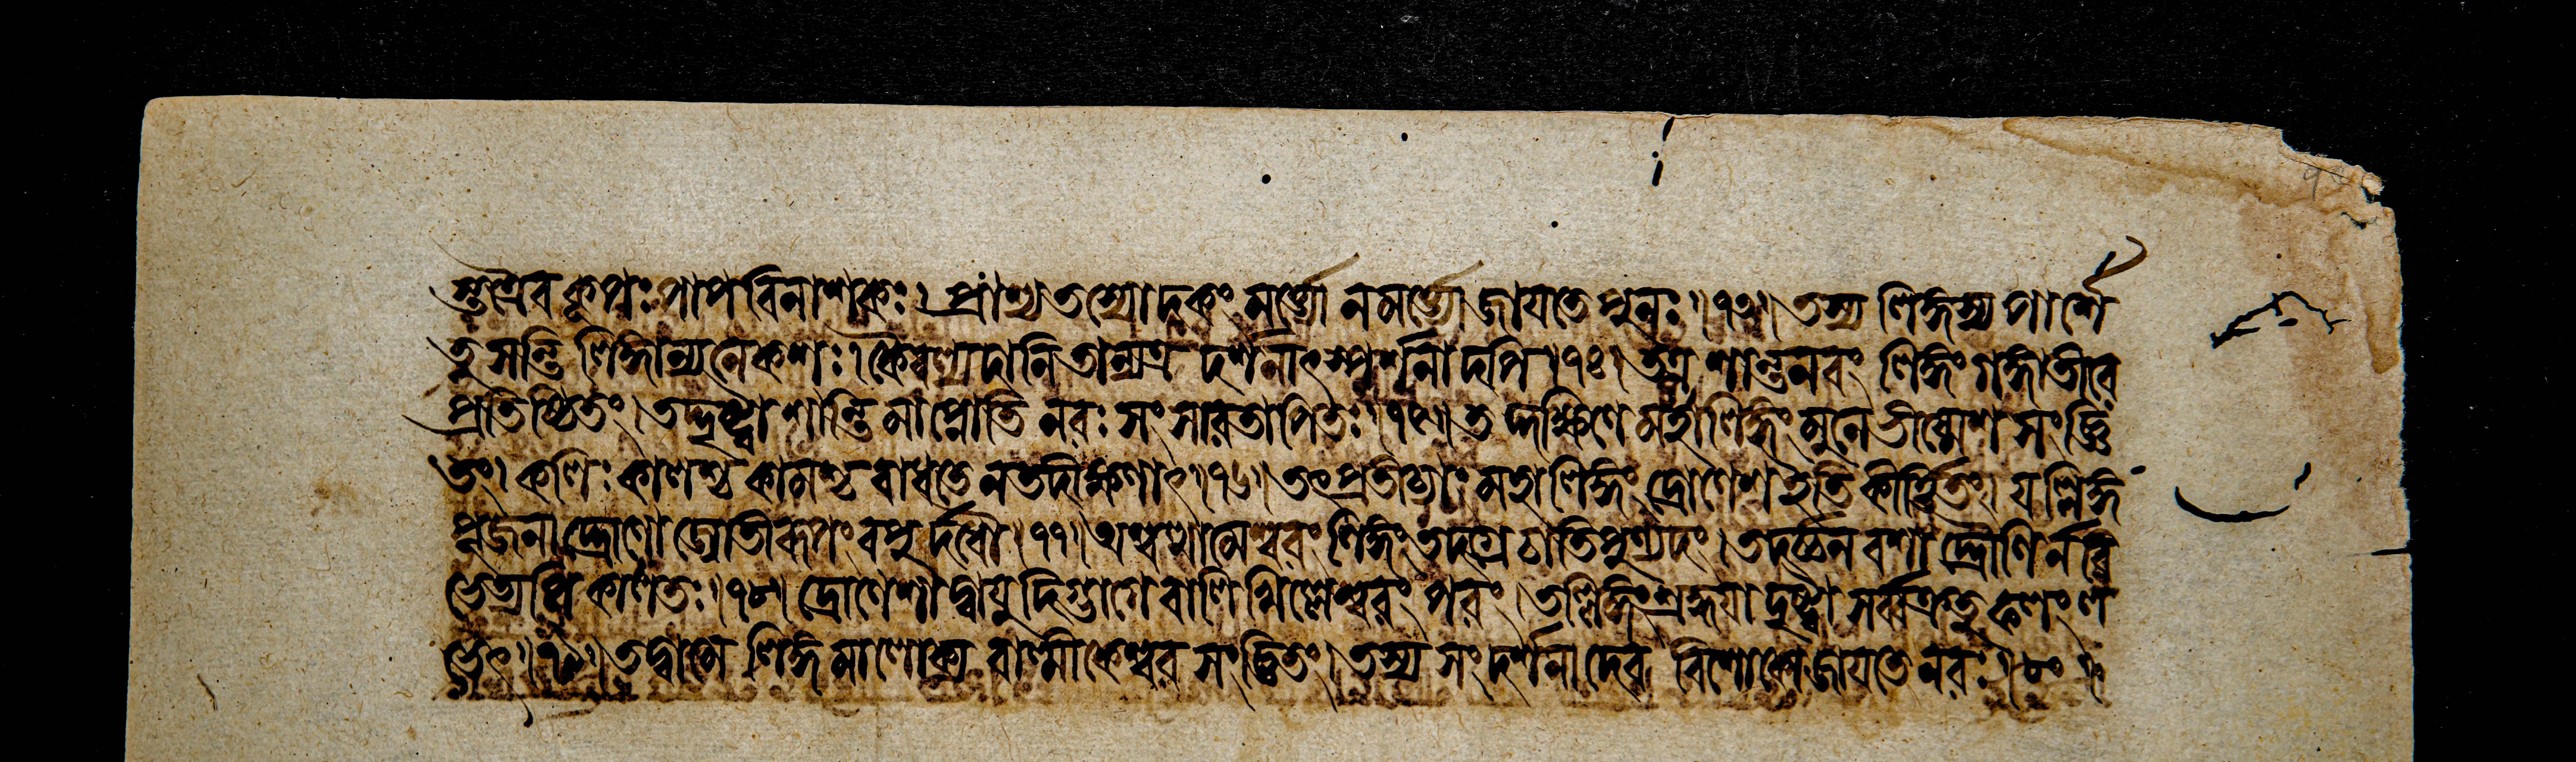 স্তত্রৈব কূপঃ পাপবিনাশকঃ। প্রাশ্য তস্যোদকং মর্ত্ত্যো ন মর্ত্ত্যো জায়তে পুনঃ॥৭৩॥ তস্য লিঙ্গস্য পার্শ্বে
তু সন্তি লিঙ্গান্যনেকশঃ। কৈবল্যদানি তান্যত্র দর্শনাৎস্পর্শনাদপি॥৭৪॥ তত্র শান্তনবং লিঙ্গং গঙ্গাতীরে
প্রতিষ্ঠিতং। তদ্দৃষ্ট্বা শান্তিমাপ্নোতি নরঃ সংসারতাপিতঃ॥৭৫॥ তদ্দক্ষিণে মহালিঙ্গং মুনে ভীষ্মেশসংজ্ঞি
তং। কলিঃ কালশ্চ কামশ্চ বাধতে ন তদীক্ষণাৎ॥৭৬॥ তৎপ্রতীচ্যাং মহালিঙ্গং দ্রোণেশ ইতি কীর্ত্তিতং। যল্লিঙ্গ
পূজনাদ্দ্রোণো জ্যোতীরূপং বপুর্দধৌ॥৭৭॥ অশ্বত্থামেশ্বরং লিঙ্গং তদগ্রে চাতিপুণ্যদং। তদর্চ্চনবশাদ্দ্রৌণির্নবি
ভেত্যপি কালতঃ॥৭৮॥ দ্রোণেশাদ্বায়ুদিগ্ভাগে বালিখিল্লেশ্বরং পরং। তল্লিঙ্গং শ্রদ্ধয়া দৃষ্ট্বা সর্ব্বক্রতুফলং ল
ভেৎ॥৭৯॥ তদ্বামে লিঙ্গমালোক্য বাল্মীকেশ্বরসংজ্ঞিতং। তস্য সংদর্শনাদেব বিশোকো জায়তে নরঃ॥৮০॥